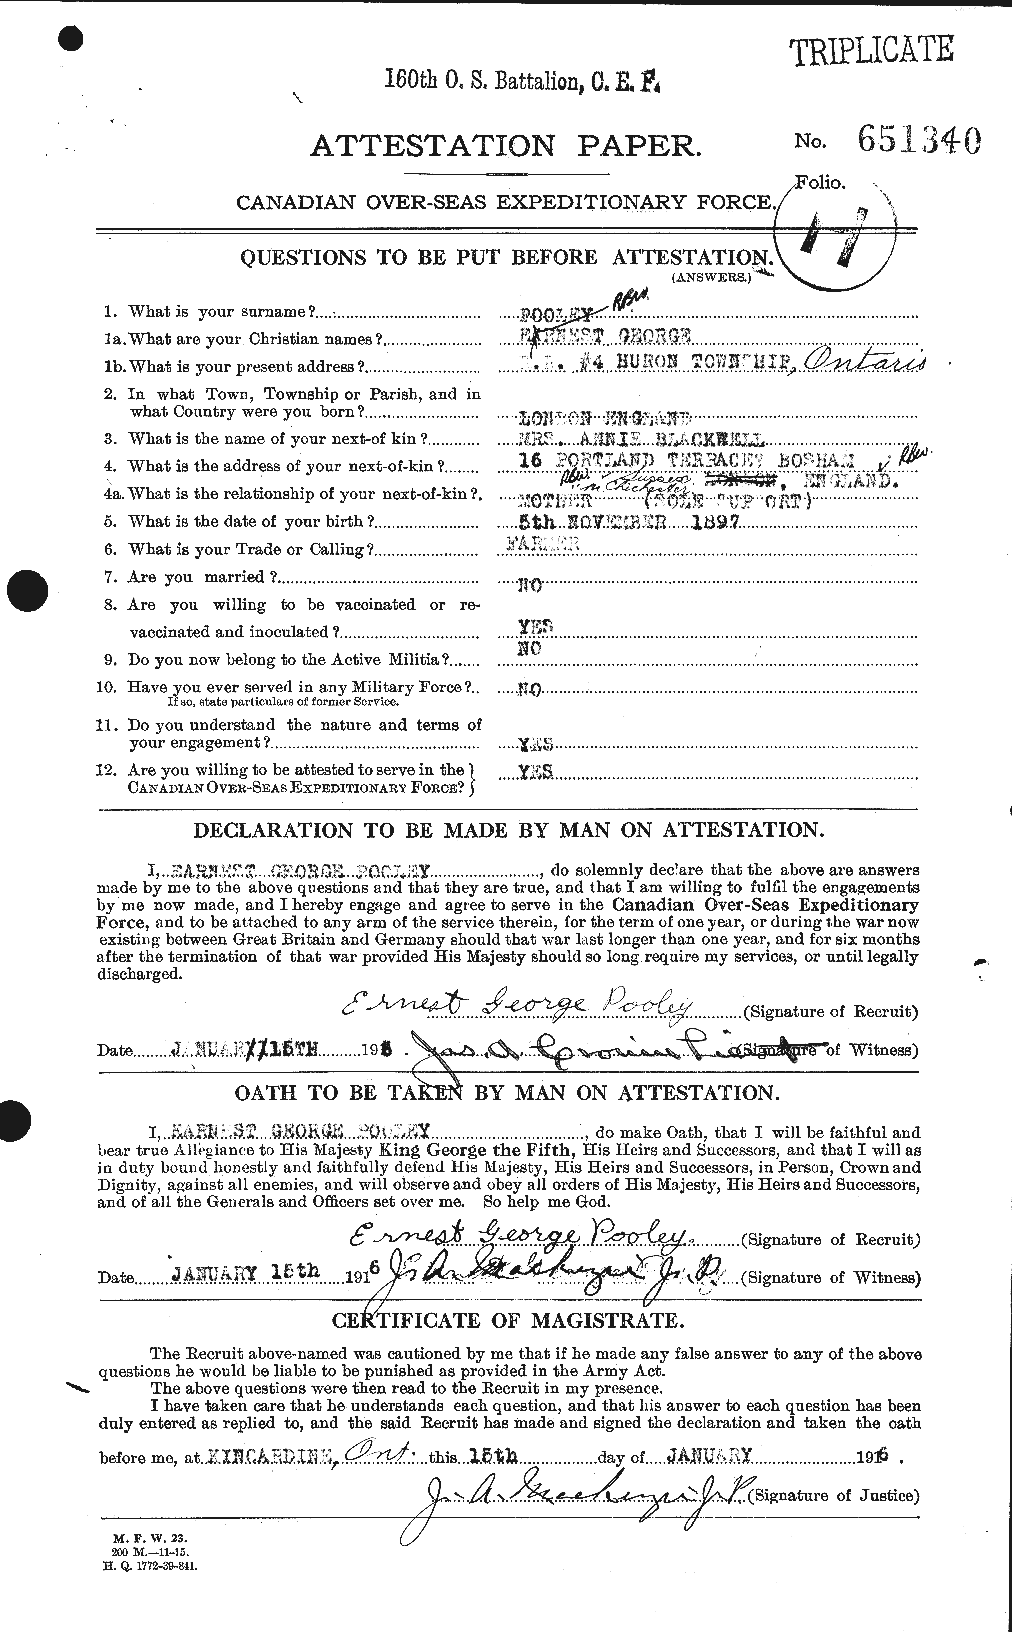 TRIPLICATE
160th O. S. Battalion, C. E. F.
ATTESTATION PAPER.
No. 651340
Folio.
17
CANADIAN OVER-SEAS EXPEDITIONARY FORCE.
QUESTIONS TO BE PUT BEFORE ATTESTATION.
(ANSWERS.)
1. What is your surname? POOLEY
1a. What are your Christian names? EARNEST GEORGE
1b. What is your present address? R.R. #4 HURON TOWNSHIP, Ontario
2. In what Town, Township or Parish, and in
what Country were you born? LONDON ENGLAND
3. What is the name of your next-of kin? MRS. ANNIE BLACKWELL
4. What is the address of your next-of-kin? 16 PORTLAND TERRACE BOSHAM
Sussex
nr Chichester LONDON, ENGLAND.
4a. What is the relationship of your next-of-kin? MOTHER (SOLE SUPPORT)
5. What is the date of your birth? 5th NOVEMBER 1897
6. What is your Trade or Calling? FARMER
7. Are you married? NO
8. Are you willing to be vaccinated or re-
vaccinated and inoculated? YES
9. Do you now belong to the Active Militia? NO
10. Have you ever served in any Military Force? NO
If so, state particulars of former Service.
11. Do you understand the nature and terms of
your engagement? YES
12. Are you willing to be attested to serve in the
CANADIAN OVER-SEAS EXPEDITIONARY FORCE? YES
DECLARATION TO BE MADE BY MAN ON ATTESTATION.
I, EARNEST GEORGE POOLEY, do solemnly declare that the above are answers
made by me to the above questions and that they are true, and that I am willing to fulfil the engagements
by me now made, and I hereby engage and agree to serve in the Canadian Over-Seas Expeditionary
Force, and to be attached to any arm of the service therein, for the term of one year, or during the war now
existing between Great Britain and Germany should that war last longer than one year, and for six months
after the termination of that war provided His Majesty should so long require my services, or until legally
discharged.
Ernest George Pooley (Signature of Recruit)
Date JANUARY 15TH 1916. Jas. A. (Signature of Witness)
OATH TO BE TAKEN BY MAN ON ATTESTATION.
I, EARNEST GEORGE POOLEY, do make Oath, that I will be faithful and
bear true Allegiance to His Majesty King George the Fifth, His Heirs and Successors, and that I will as
in duty bound honestly and faithfully defend His Majesty, His Heirs and Successors, in Person, Crown and
Dignity, against all enemies, and will observe and obey all orders of His Majesty, His Heirs and Successors,
and of all the Generals and Officers set over me. So help me God.
Ernest George Pooley. (Signature of Recruit)
Date JANUARY 15th 1916 J. A. Mackenzie J. P. (Signature of Witness)
CERTIFICATE OF MAGISTRATE.
The Recruit above-named was cautioned by me that if he made any false answer to any of the above
questions he would be liable to be punished as provided in the Army Act.
The above questions were then read to the Recruit in my presence.
I have taken care that he understands each question, and that his answer to each question has been
duly entered as replied to, and the said Recruit has made and signed the declaration and taken the oath
before me, at KINCARDINE, Ont. this 15th day of JANUARY 1916.
J. A. Mackenzie J. P. (Signature of Justice)
M. F. W. 23.
200 M.—11-15.
H. Q. 1772-39-841.